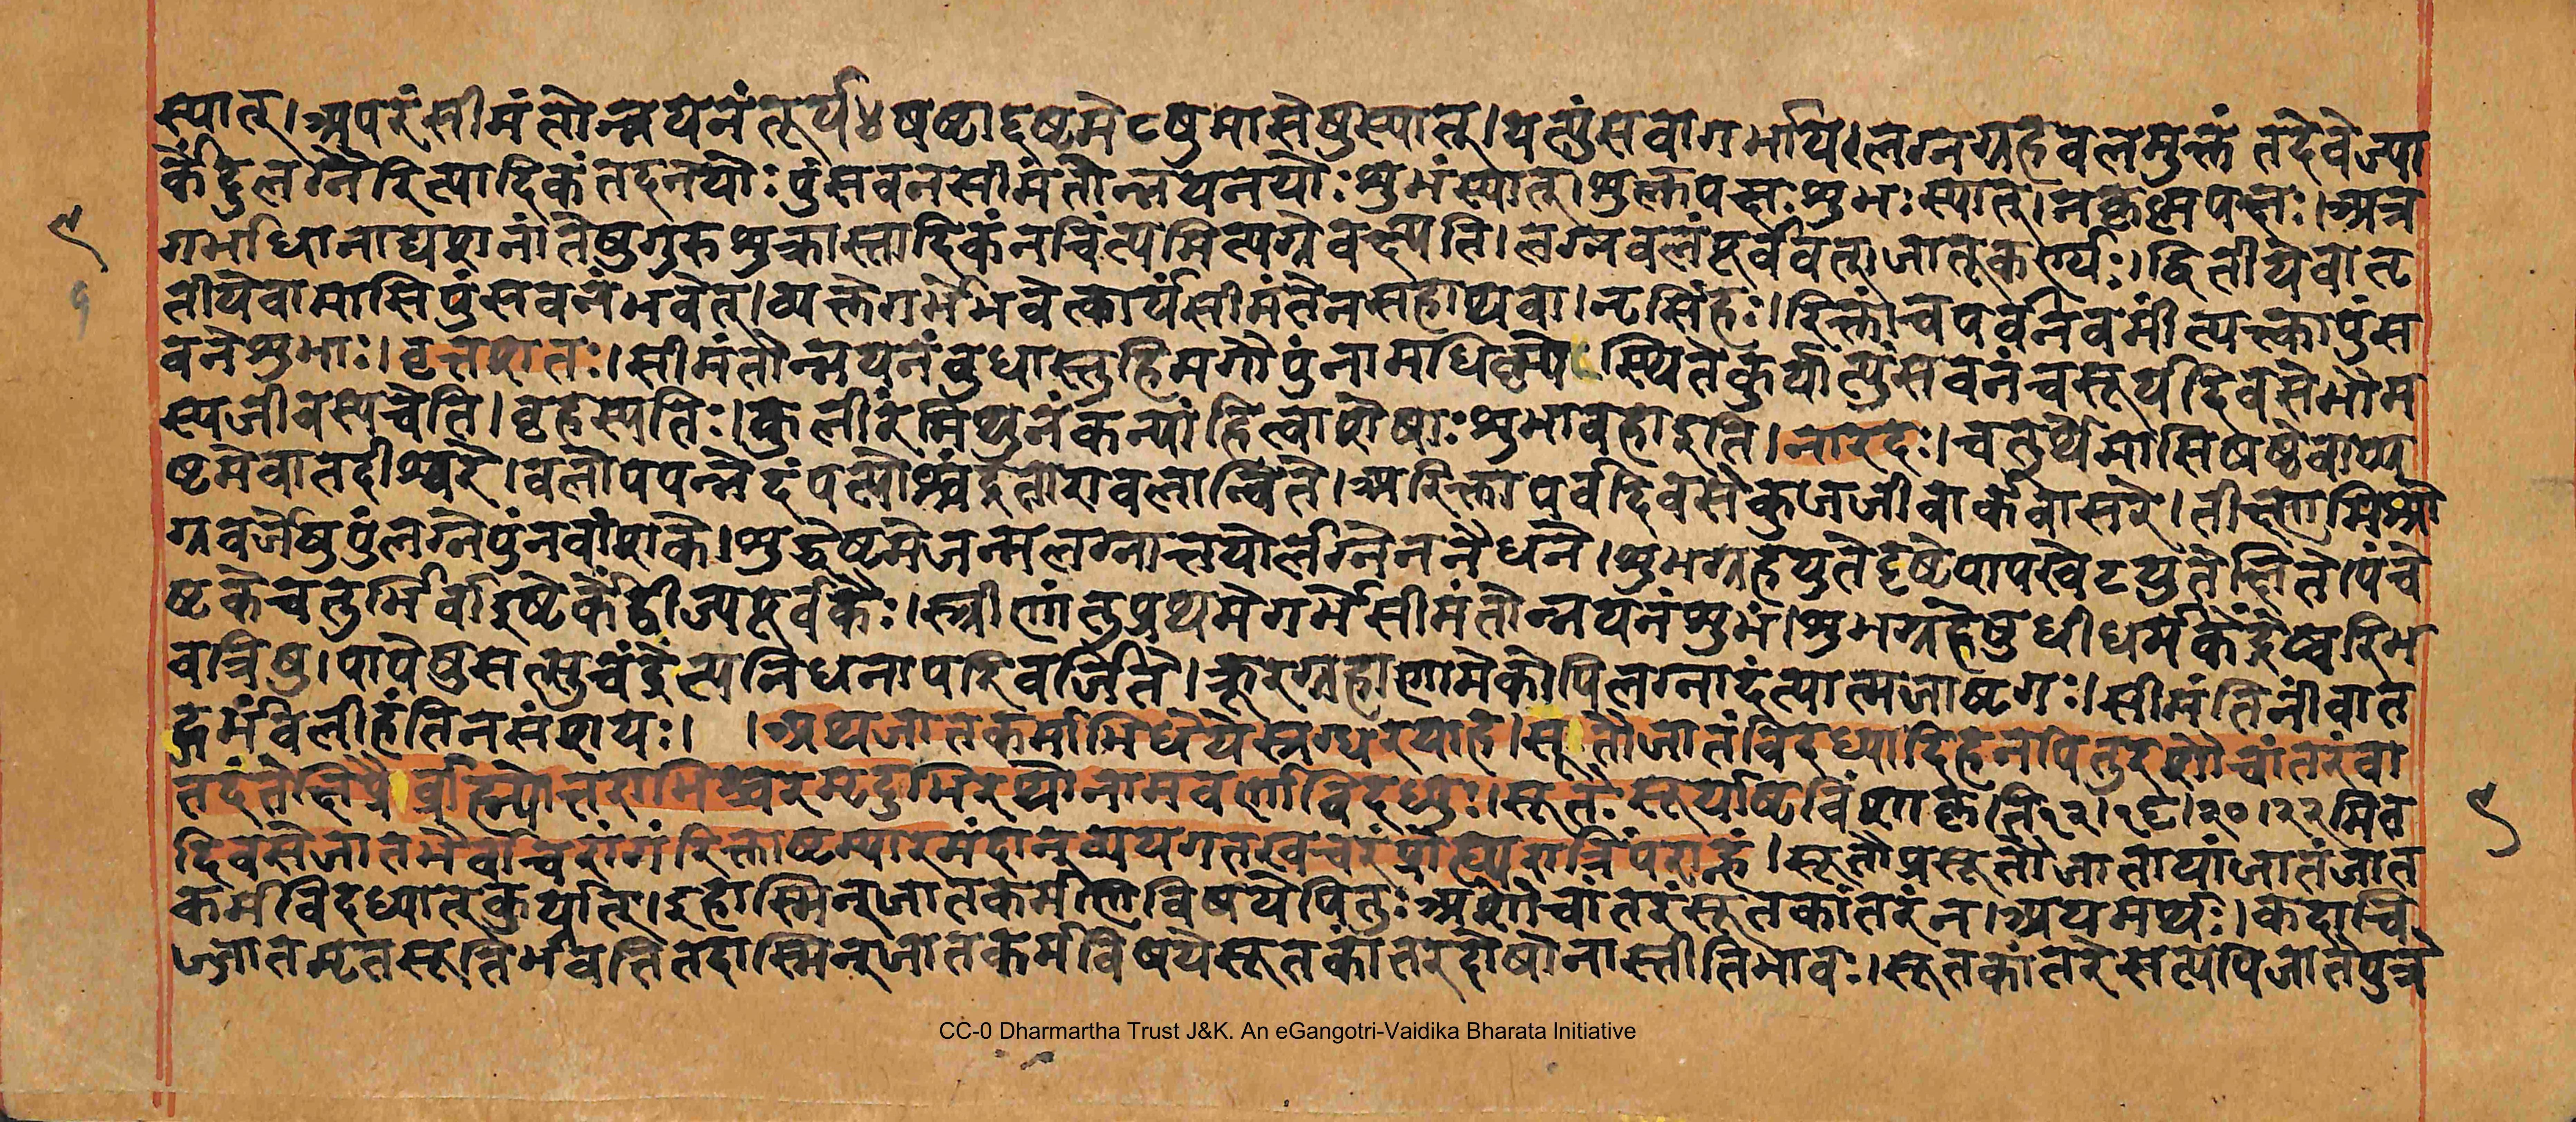 स्यात्।अपरंसीमंतोन्नयनंतूर्य४षष्ठाद्यष्टमे८षुमासेषुस्यात्।यत्पुंसवागर्भाये।लग्नग्रहबलमुक्तं तदेवेज्या
र्केंदुलग्नैरित्यादिकंतदनयोःपुंसवनसीमंतोन्नयनयोःशुभंस्यात्।शुक्लपक्षःशुभःस्यात्।नकृष्णपक्षः।अत्र
गर्भाधानाद्यशनांतेषुगुरुशुक्रास्तादिकंनचिंत्यमित्यग्रेवक्ष्यति।लग्नबलंपूर्ववत्।जातूकर्ण्यः।द्वितीयेवातृ
तीयेवामासिपुंसवनंभवेत्।व्यक्तेगर्भेभवेत्कार्यंसीमंतेनसहाथवा।नृसिंहः।रिक्तांचपर्वनवमींत्यक्त्वापुंस
वनेशुभाः।वृत्तशतः।सीमंतोन्नयनंबुधास्तुहिमगौपुंनामधिष्ण्ये स्थितेकुर्यात्पुंसवनंचसूर्यदिवसेभौम
स्यजीवस्यचेति।बृहस्पतिः।कुलीरंमिथुनंकन्यांहित्वाशेषाःशुभावहाइति।नारदः।चतुर्थेमासिषष्ठेवाप्य
ष्टमेवातदीश्वरे।बलोपपन्नेदंपत्योश्चंद्रताराबलान्विते।अरिक्तापर्वदिवसेकुजजीवार्कवासरे।तीक्ष्णमिश्रो
ग्रवर्जेषुपुंलग्नेपुंनवांशके।शुद्धेष्टमेजन्मलग्नात्तयोर्लग्नेननैधने।शुभग्रहयुतेदृष्टेपापखेटयुतेक्षिते।पंचे
ष्टकेचतुर्भिर्वादृष्टेर्केंद्वीज्यपूर्वकैः।स्त्रीणांतुप्रथमेगर्भेसीमंतोन्नयनंशुभं।शुभग्रहेषुधीधर्मकेंद्रेष्वरिभ
वत्रिषु।पापेषुसत्सुचंद्रेंत्यनिधनापरिवर्जिते।क्रूरग्रहाणामेकोपिलग्नादंत्यात्मजाष्टगः।सीमंतिनींवात
द्गर्भंबलीहंतिनसंशयः। ।अथजातकर्माभिधेयेस्रग्धरयाह।सूतौजातंविदध्यादिहनपितुरशौचांतरंवा
तदंतेक्षिप्रै ब्राह्म्योत्तराभिश्चरमृदुभिरथोनामवर्णाविदध्युः।सूतेःसूर्याष्टविंशाकृति१२।१८।२०।२२मित
दिवसेजातभैर्वाचरांगंरिक्ताष्टम्यारमंदानुव्ययगतखचरंप्रोह्यरात्रिंपराह्णं।सूतौप्रसूतौजातायांजातंजात
कर्मविदध्यात्कुर्यात्।इहास्मिन्जातकर्मणिविषयेपितुःअशौचांतरंसूतकांतरंन।अयमर्थः।कदाचि
ज्जातमृतसूतिर्भवतितदास्मिन्जातकर्मविषयेसूतकांतरदोषोनास्तीतिभावः।सूतकांतरेसत्यपिजातेपुत्रे
CC-0 Dharmartha Trust J&K. An eGangotri-Vaidika Bharata Initiative